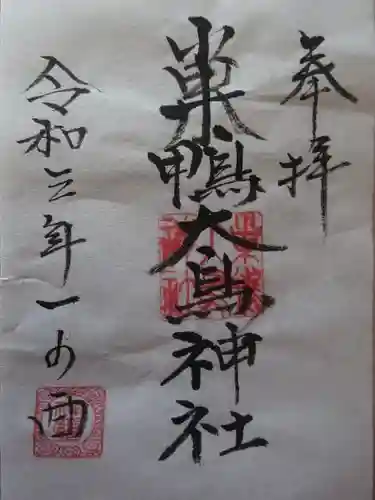 奉拝
巣鴨大鳥神社
令和元年一の酉